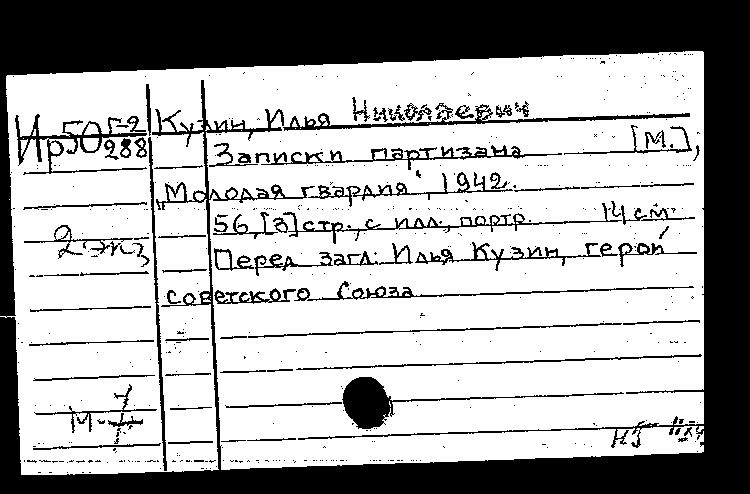 Ир50 Г-2/288
Кузин, Илья Николаевич
Записки партизана [М.],
„Молодая гвардия", 1942.
56,[3]стр., с илл., портр. 14 см.
2 экз
Перед загл: Илья Кузин, герой
советского Союза
М-7